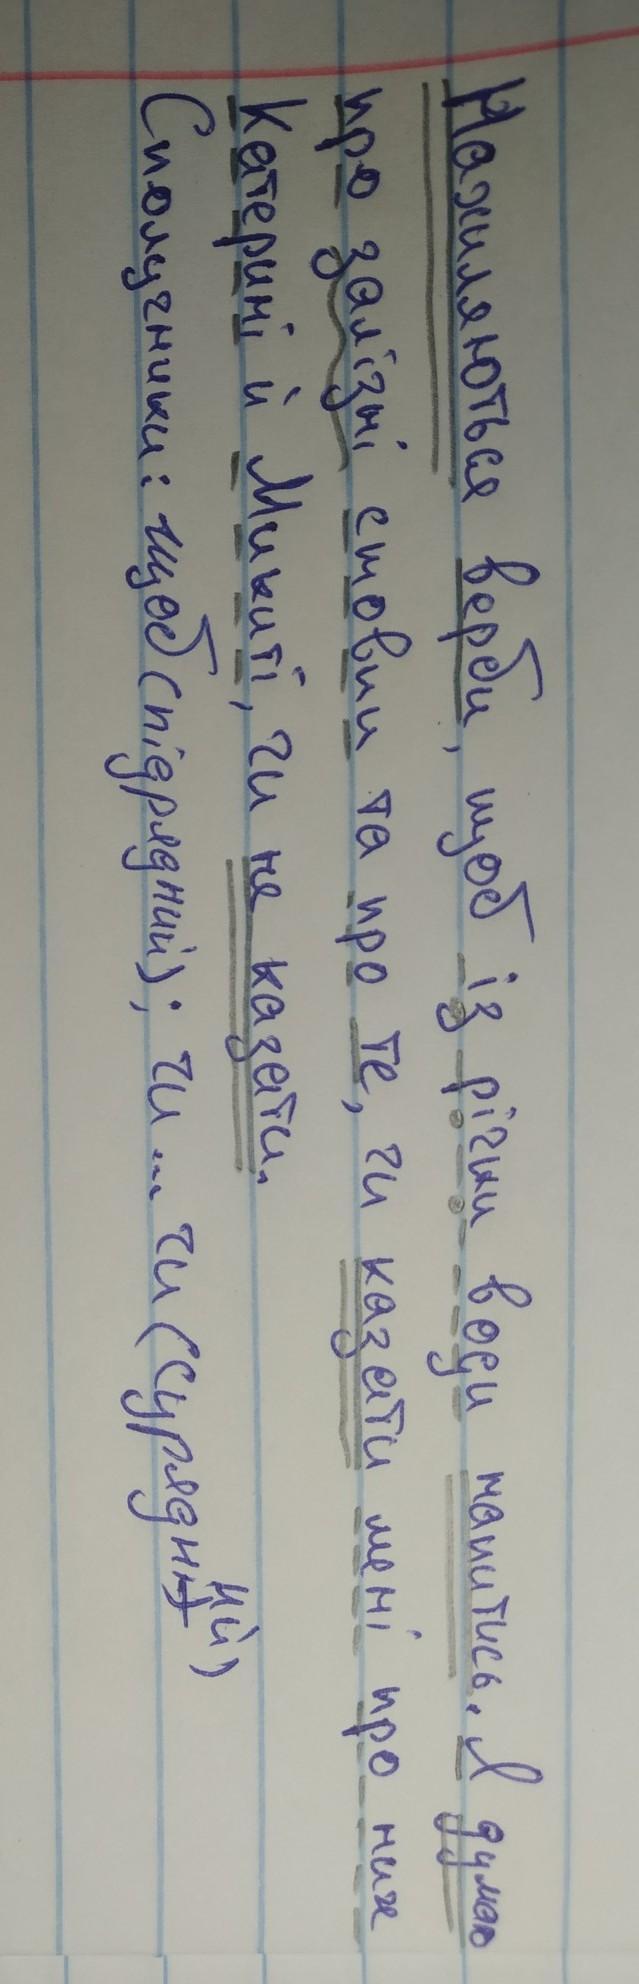 Нахиляються верби, щоб із річки води напитись. Я думаю
про залізні стовпи та про те, чи казати мені про них
Катерині й Микиті, чи не казати.
Сполучники: щоб (підрядний); чи... чи (сурядний)